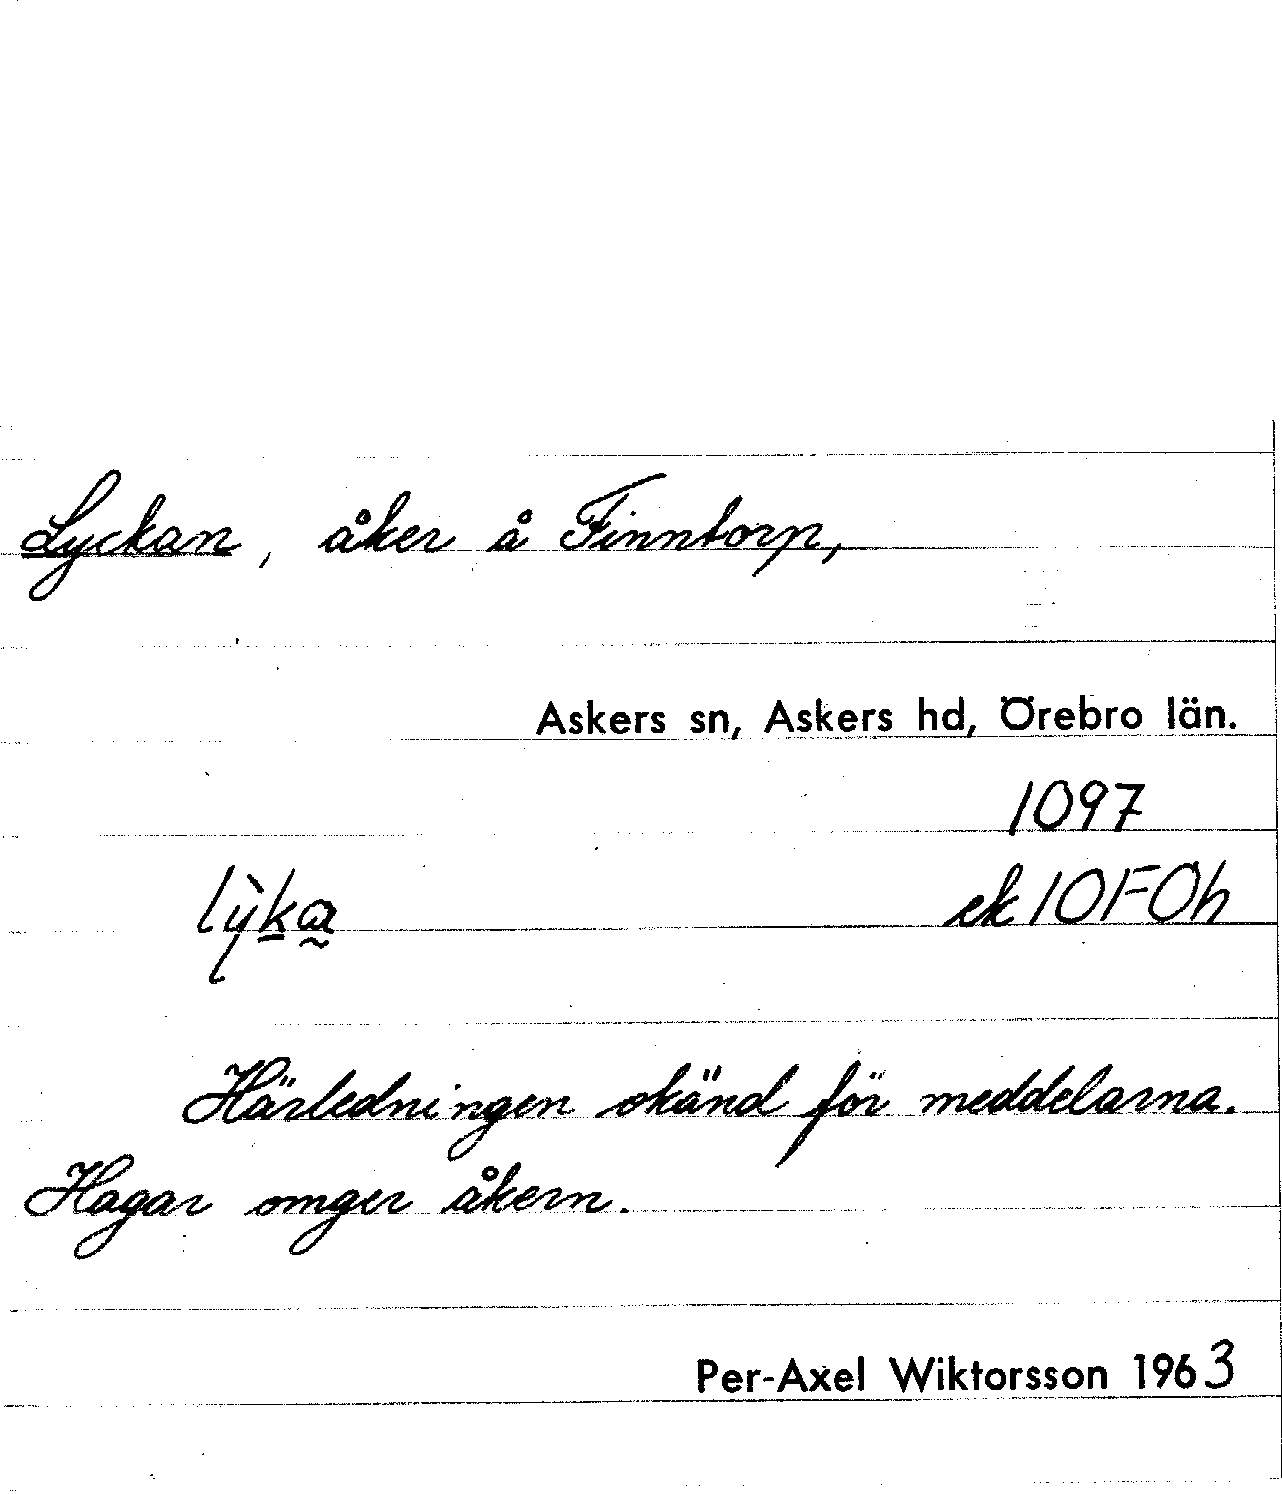 Lyckan, åker å Finntorp,
Askers sn, Askers hd, Örebro län.
1097
lỳka ek 10F0h
Härledningen okänd för meddelarna.
Hagar omger åkern.
Per-Axel Wiktorsson 1963